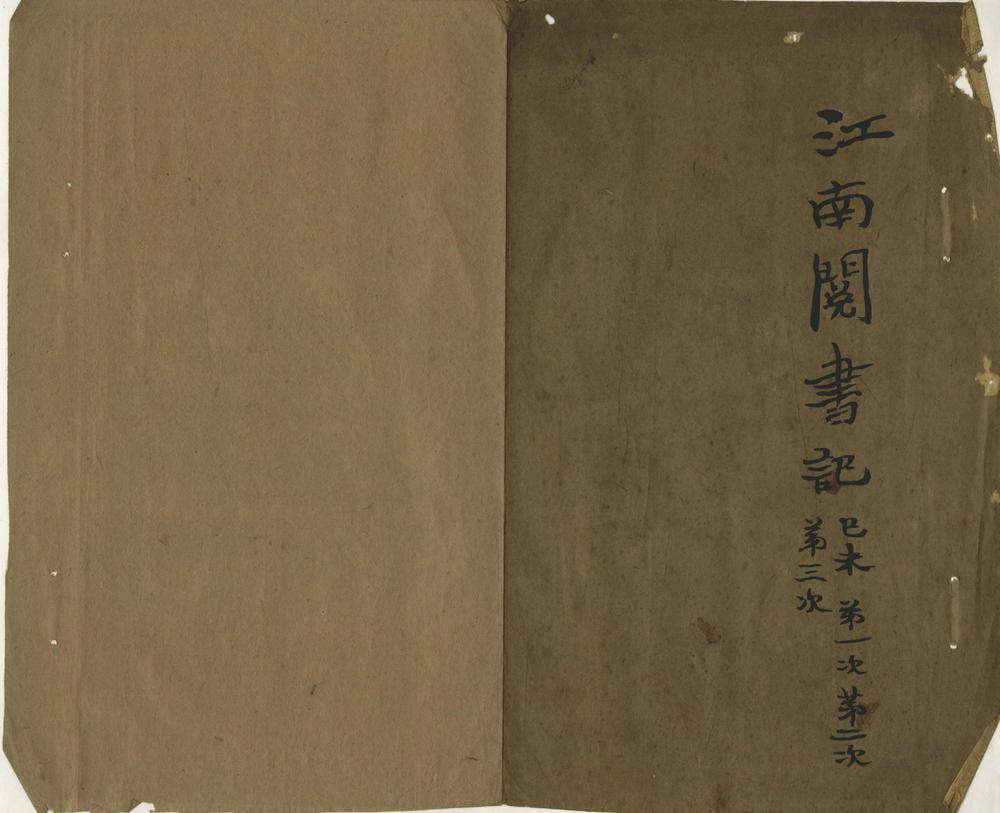 江南閱書記
己未 第一次 第二次
第三次